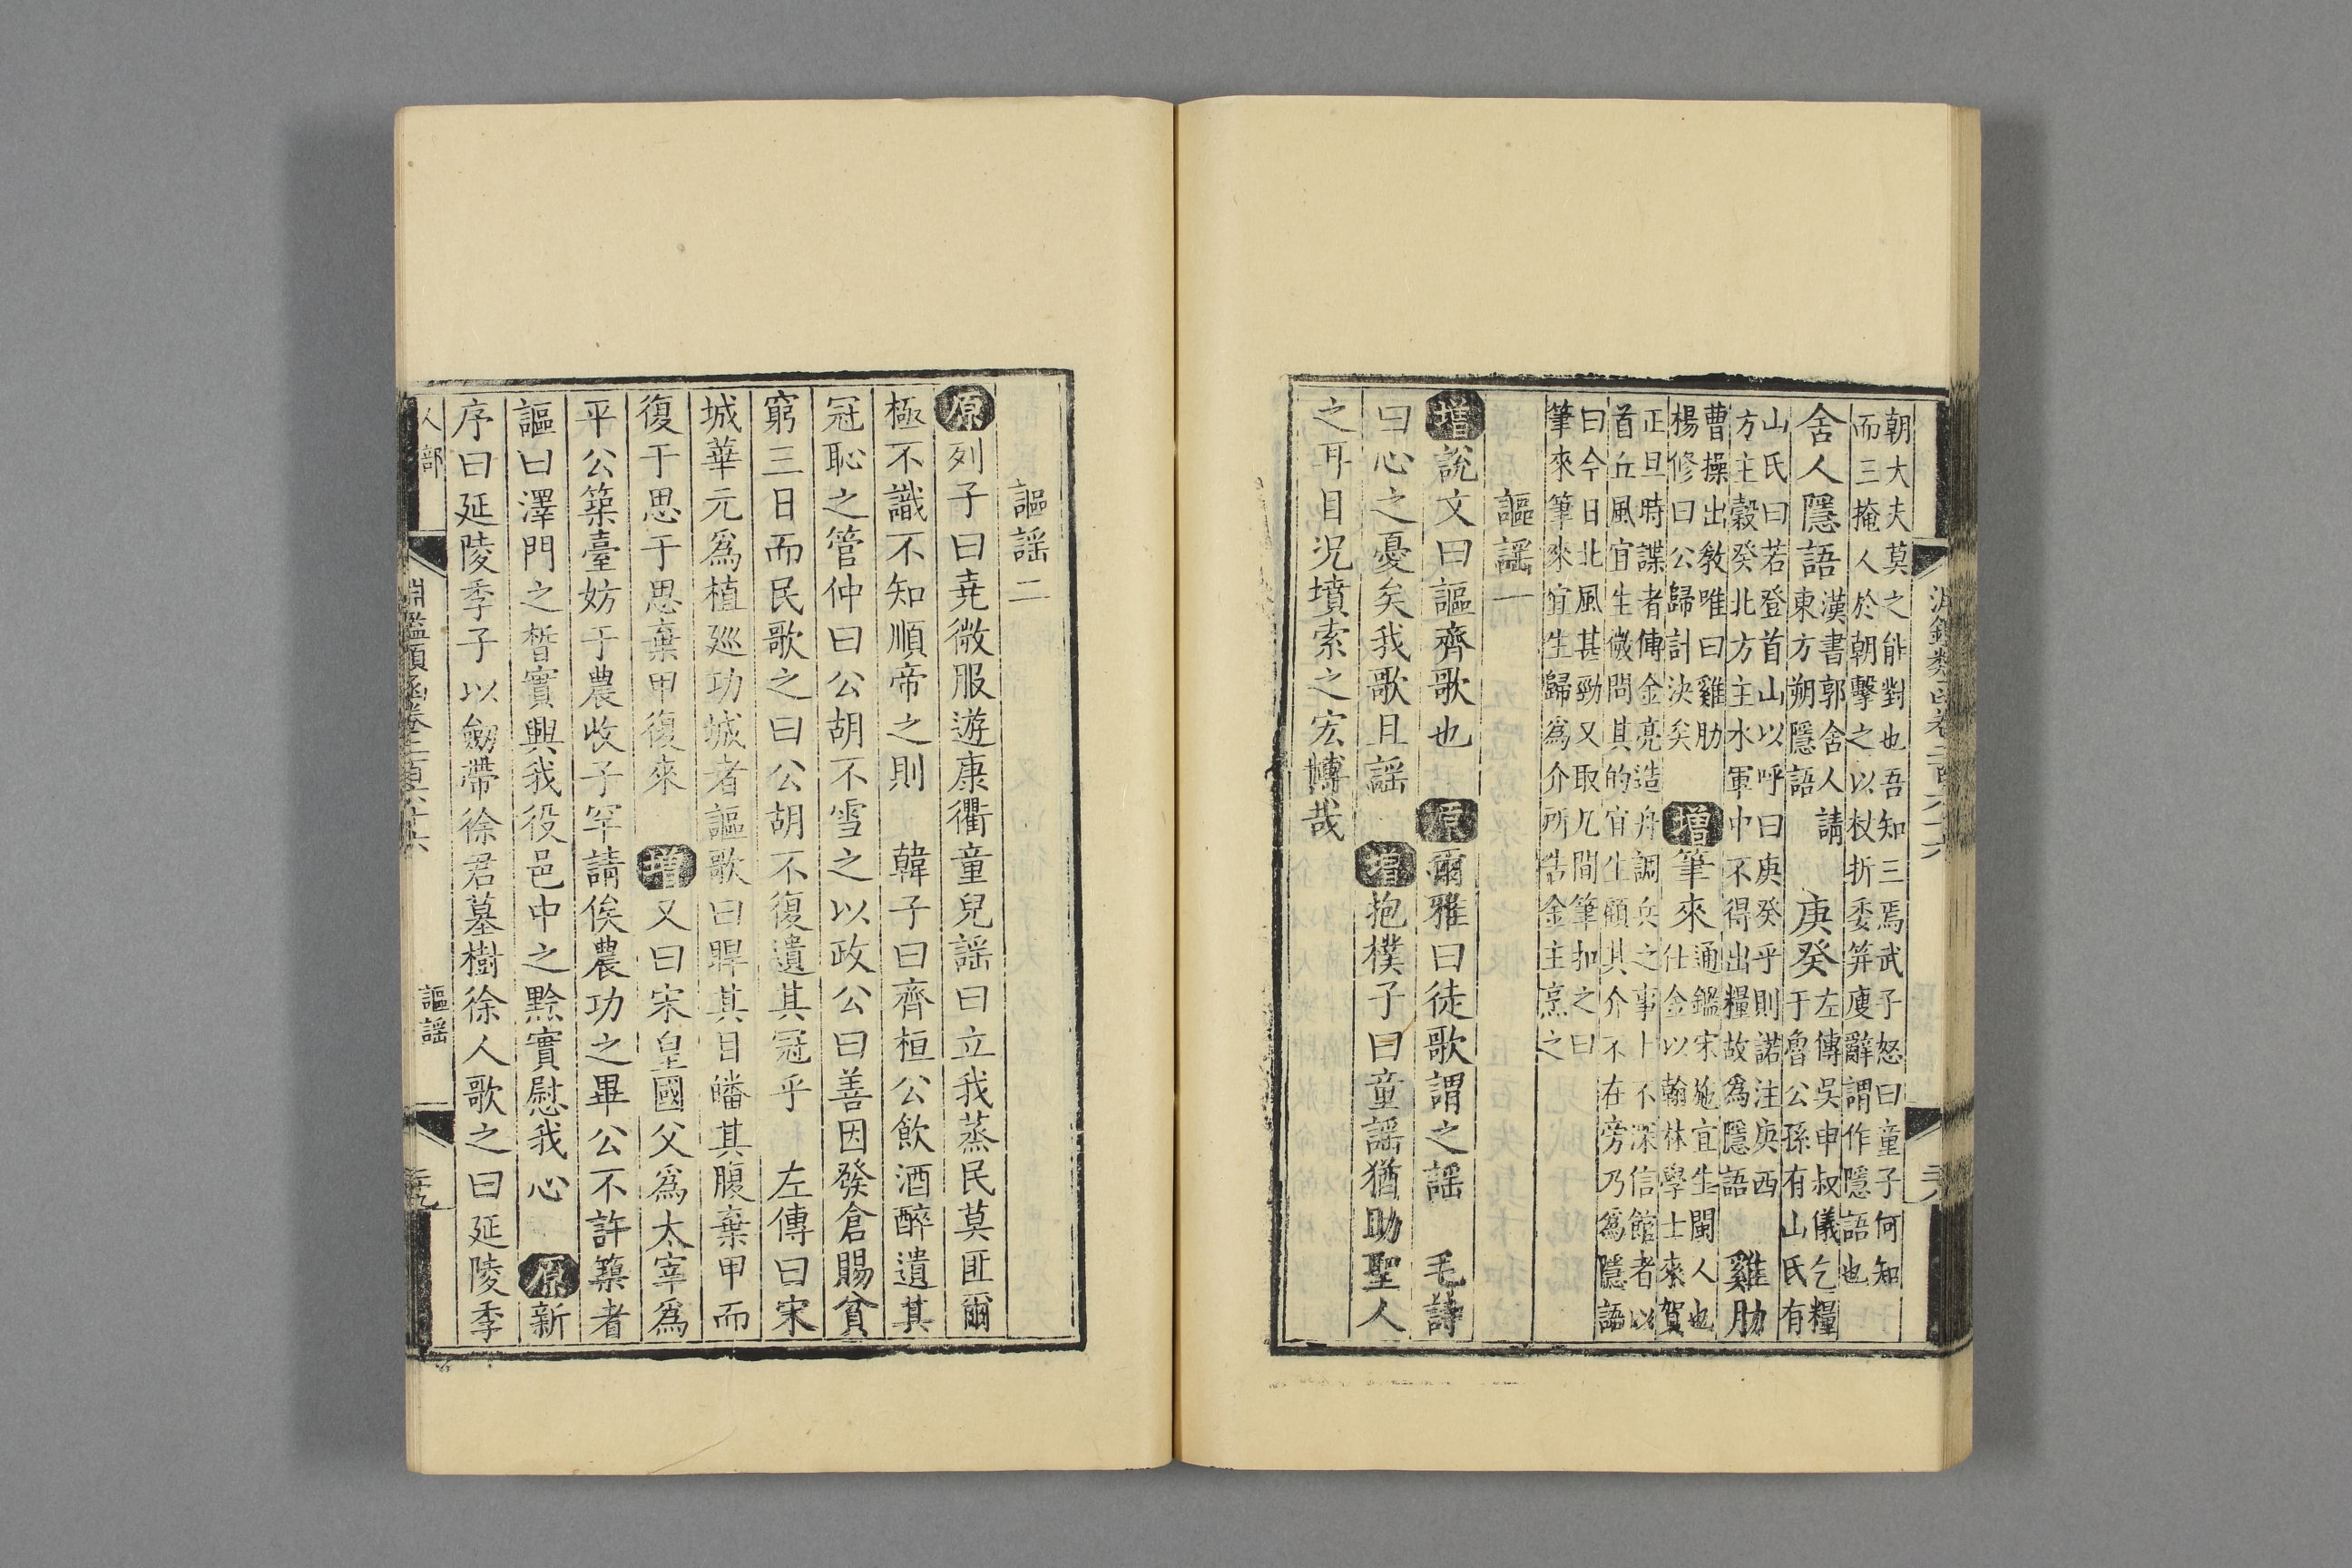 朝大夫莫之能對也吾知三焉武子怒曰童子何知
而三掩人於朝擊之以杖折委笄廋辭謂作隱語也
舍人隱語漢書郭舍人請
東方朔隱語
庚癸左傳吳申叔儀乞糧
于魯公孫有山氏有
山氏曰若登首山以呼曰庚癸乎則諾注庚西
方主穀癸北方主水軍中不得出糧故為隱語
雞肋
曹操出教唯曰雞肋
楊修曰公歸計決矣
增筆來通鑑宋施宜生閩人也
仕金以翰林學士來賀
正旦時諜者傳金亮造舟調兵之事上不深信館者以
首丘風宜生微問其的宜生顧其介不在旁乃為隱語
曰今日北風甚勁又取几間筆扣之曰
筆來筆來宜生歸為介所告金主烹之
謳謠一
增說文曰謳齊歌也 原爾雅曰徒歌謂之謠 毛詩
曰心之憂矣我歌且謠 增抱樸子曰童謠猶助聖人
之耳目况墳索之宏博哉
謳謠二
原列子曰堯微服遊康衢童兒謠曰立我蒸民莫匪爾
極不識不知順帝之則 韓子曰齊桓公飲酒醉遺其
冠恥之管仲曰公胡不雪之以政公曰善因發倉賜貧
窮三日而民歌之曰公胡不復遺其冠乎 左傳曰宋
城華元為植廵功城者謳歌曰睅其目皤其腹棄甲而
復于思于思棄甲復來 增又曰宋皇國父為太宰為
平公築臺妨于農收子罕請俟農功之畢公不許築者
謳曰澤門之晳實興我役邑中之黔實慰我心 原新
序曰延陵季子以劒帶徐君墓樹徐人歌之曰延陵季
人部
淵鑑類函卷二百六十六
謳謠